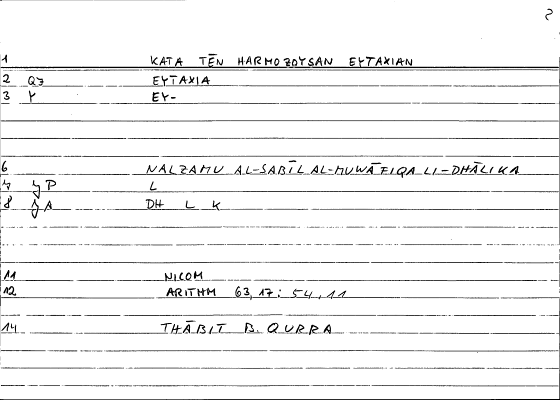 2
1 KATA TĒN HARMOZOYSAN EYTAXIAN
2 QZ EYTAXIA
3 Y EY-
6 NALZAMU AL-SABĪL AL-MUWĀFIQA LI-DHĀLIKA
7 YP L
8 YA DH L K
11 NICOM
12 ARITHM 63,17: 54,11
14 THĀBIT B. QURRA